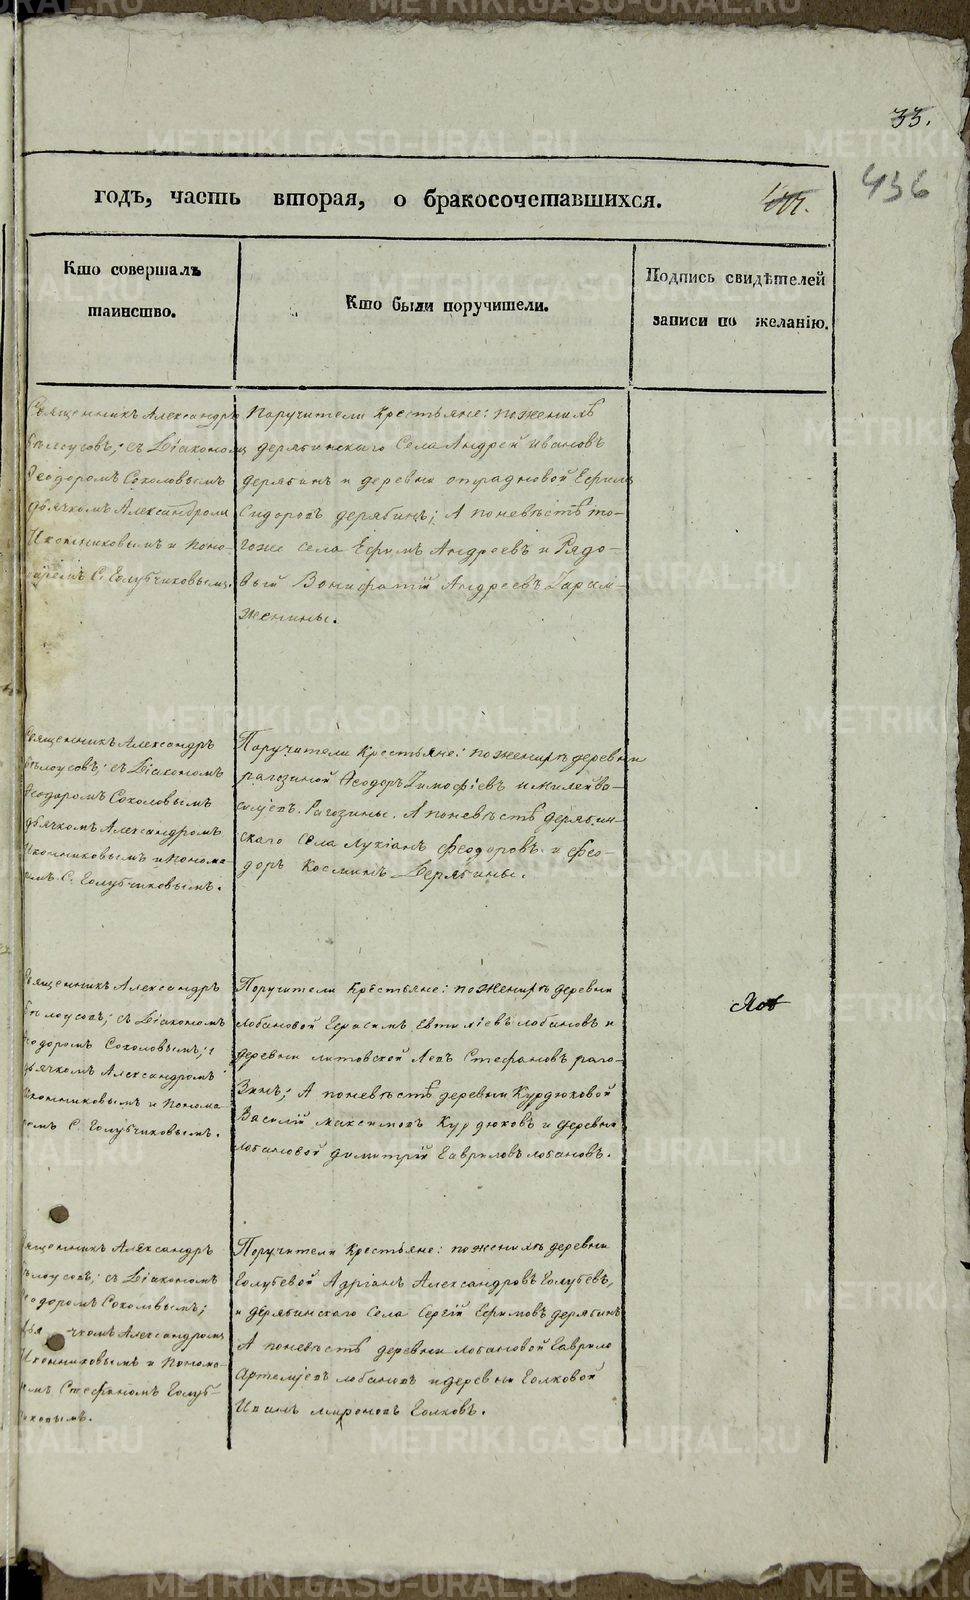 33.
436
годъ, часть вторая, о бракосочетавшихся.
Кто совершалъ
таинство.
Кто были поручители.
Подпись свидѣтелей
записи по желанію.
Священникъ Александръ
Бѣлоусовъ; съ Діакономъ
Ѳеодоромъ Соколовымъ
дьячкомъ Александромъ
Иконниковымъ и Поно-
С. Голубчиковымъ.
Поручители Крестьяне: по женихѣ
дерябинскаго Села Андрей Ивановъ
дерябинъ и деревни отрадновой Ефимъ
Сидоровъ дерябинъ; А по невѣстѣ то-
гоже села Ефимъ Андреевъ и Рядо-
вый Вонифатій Андреевъ
женины.
Священникъ Александръ
Бѣлоусовъ; съ Діакономъ
Ѳеодоромъ Соколовымъ
дьячкомъ Александромъ
Иконниковымъ и Понома
С. Голубчиковымъ.
Поручители Крестьяне: по женихѣ деревни
рагозиной Ѳеодоръ Тимофіевъ и Ва-
сильевъ Рагозины. А по невѣстѣ дерябин-
скаго Села Лукіанъ Феодоровъ и Фео-
доръ Косминъ Дерябины.
Священникъ Александръ
Бѣлоусовъ; съ Діакономъ
Ѳеодоромъ Соколовымъ;
дьячкомъ Александромъ
Иконниковымъ и Понома
С. Голубчиковымъ.
Поручители Крестьяне: по женихѣ деревни
лобановой Герасимъ лобановъ и
деревни литовской Левъ Стефановъ раго-
зинъ; А по невѣстѣ деревни Курдюковой
Василій Максимовъ Курдюковъ и деревни
лобановой димитрій Гавриловъ лобановъ.
Священникъ Александръ
Бѣлоусовъ; съ Діакономъ
Ѳеодоромъ Соколовымъ;
дьячкомъ Александромъ
Иконниковымъ и Понома-
Стефаномъ Голуб-
чиковымъ.
Поручители Крестьяне: по женихѣ деревни
Голубевой Адріанъ Александровъ Голубевъ,
и дерябинскаго Села Сергій Ефимовъ дерябинъ
А по невѣстѣ деревни лобановой Гаврило
Артемьевъ лобановъ и деревни Голковой
Иванъ мироновъ Голковъ.
METRIKI.GASO-URAL.RU